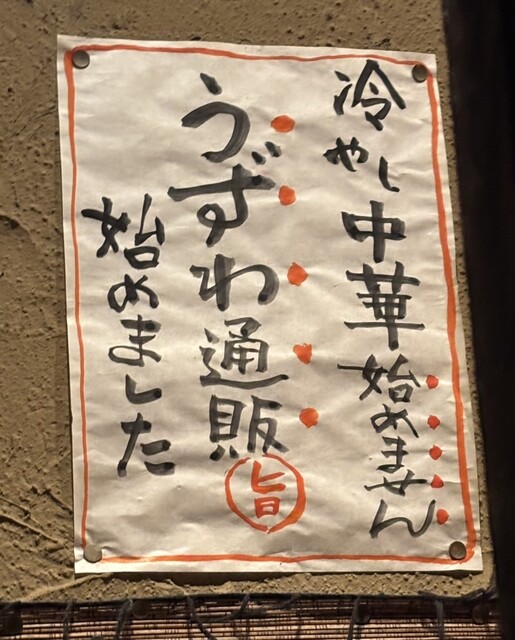 冷やし中華始めません
うずわ通販旨
始めました